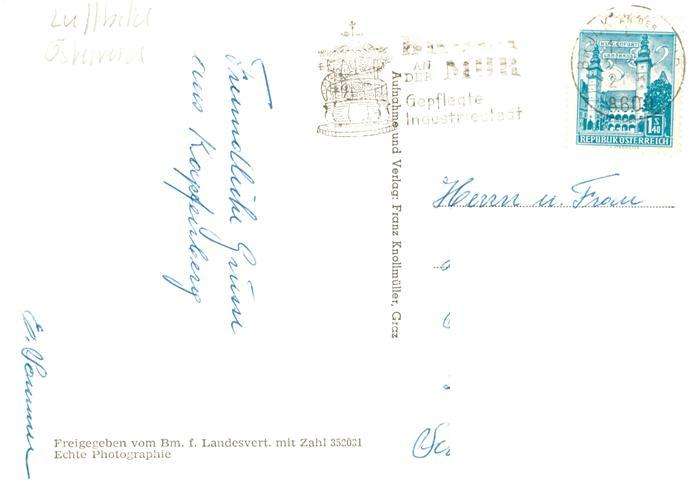 Luftbild
Österreich
Freundliche Grüsse
aus Kapfenberg
AN
DER MUR
Gepflegte
Industriestadt
8600
1.40
REPUBLIK ÖSTERREICH
Aufnahme und Verlag: Franz Knollmüller, Graz
Herrn u. Frau
Freigegeben vom Bm. f. Landesvert. mit Zahl 352031
Echte Photographie